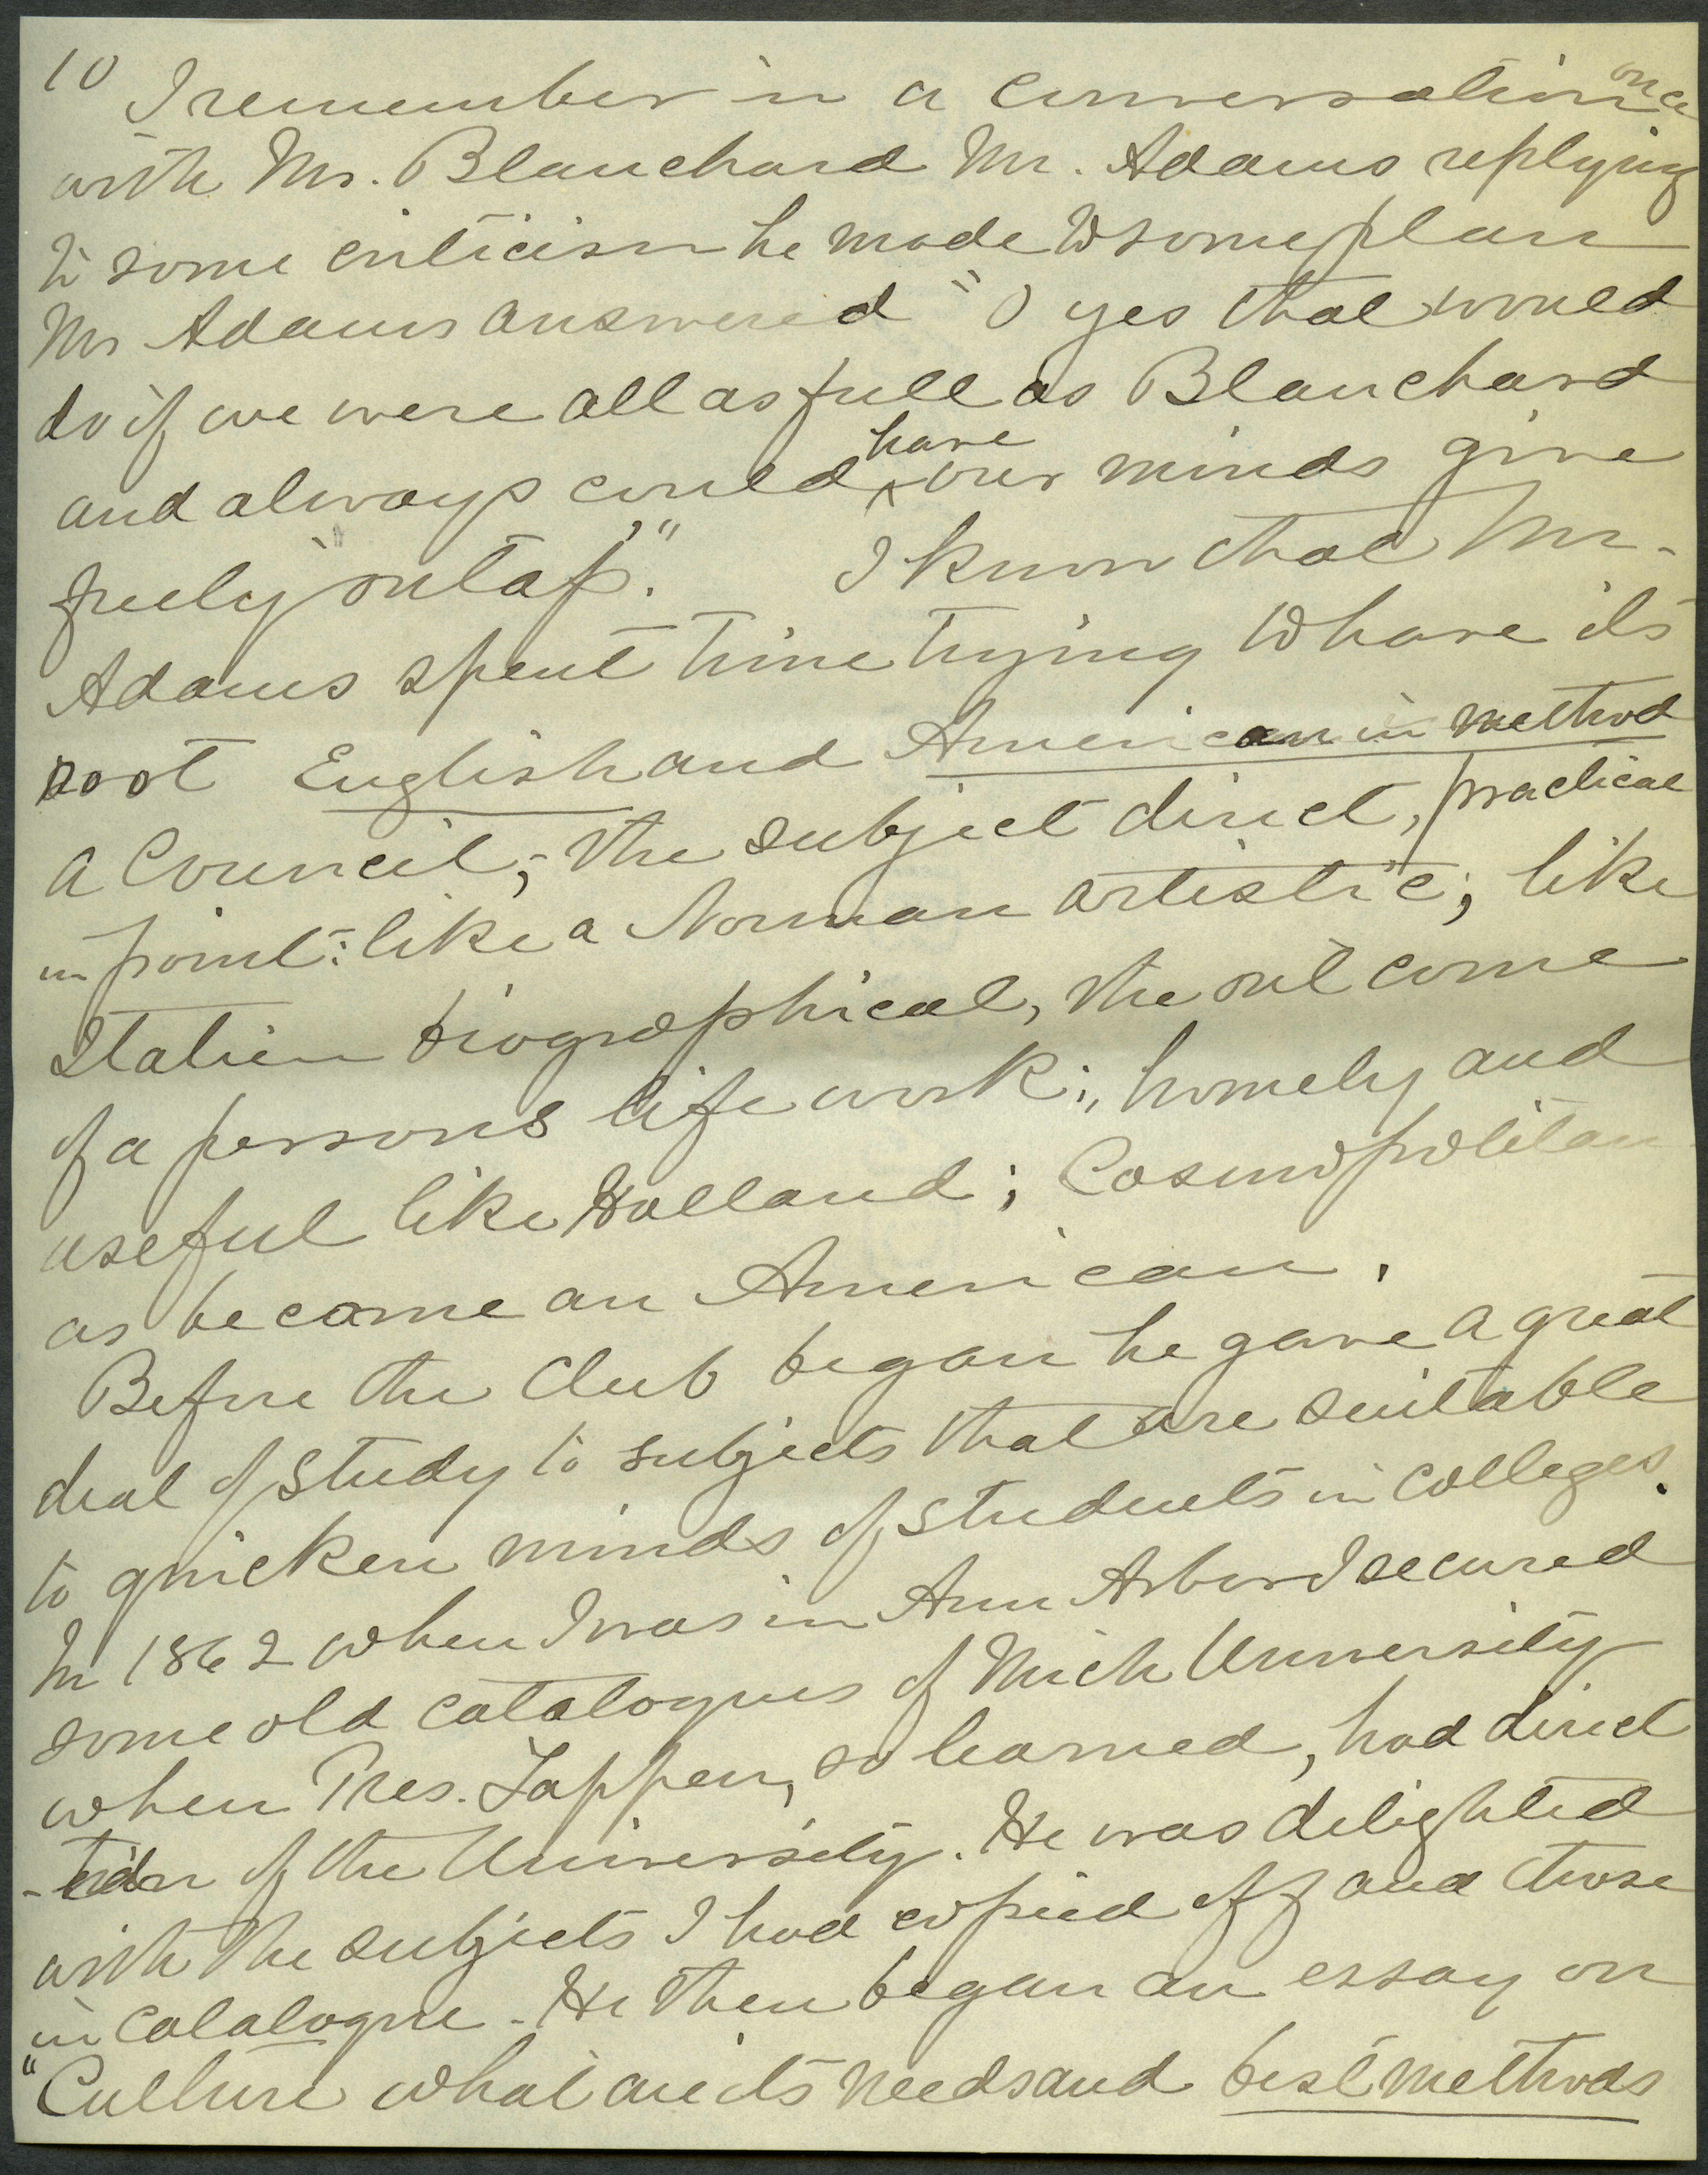 10 I remember in a conversation once
with Mr. Blanchard Mr. Adams replying
to some criticism he made to some plan
Mr Adams answered "O yes that would
do if we were all as full as Blanchard
and always could ^have our minds give
freely on tap."  I know that Mr.
Adams spent time trying to have its
root English and American in method
a Council; the subject direct, practical
in point: like a Norman artistic; like
Italian biographical, the out come
of a persons life work; homely and
useful like Holland; Cosmopolitan
as became an American.
Before the Club began he gave a great
deal of study to subjects that are suitable
to quicken minds of students in colleges.
In 1862 when I was in Ann Arbor I secured
some old catalogues of Mich University
when Pres. Tappen, so learned, had direc
-tion of the University. He was delighted
with the subjects I had copied off and those
in catalogue. He then began an essay on
"Culture what are its needs and best methods